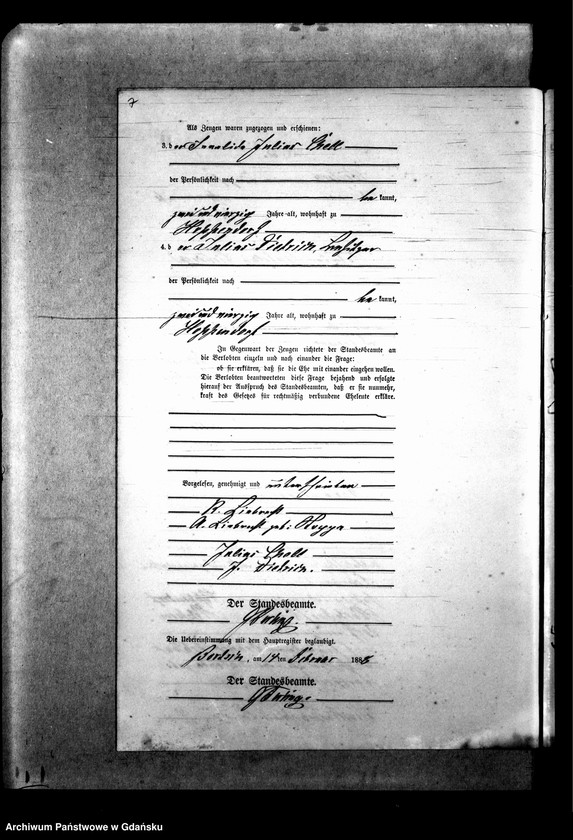 7
Als Zeugen waren zugezogen und erschienen:
3. der Invalide Julius
der Persönlichkeit nach
be kannt,
zwei und vierzig Jahre alt, wohnhaft zu
Hoppendorf
4. der Julius Dietrich,
der Persönlichkeit nach
be kannt,
zwei und vierzig Jahre alt, wohnhaft zu
Hoppendorf
In Gegenwart der Zeugen richtete der Standesbeamte an
die Verlobten einzeln und nach einander die Frage:
ob sie erklären, daß sie die Ehe mit einander eingehen wollen.
Die Verlobten beantworteten diese Frage bejahend und erfolgte
hierauf der Ausspruch des Standesbeamten, daß er sie nunmehr,
kraft des Gesetzes für rechtmäßig verbundene Eheleute erkläre.
Vorgelesen, genehmigt und unterschrieben
R. Liebrecht
A. Liebrecht geb:
Julius
J. Dietrich.
Der Standesbeamte.
Die Uebereinstimmung mit dem Hauptregister beglaubigt.
, am 14 ten Februar 188
Der Standesbeamte.
Archiwum Państwowe w Gdańsku